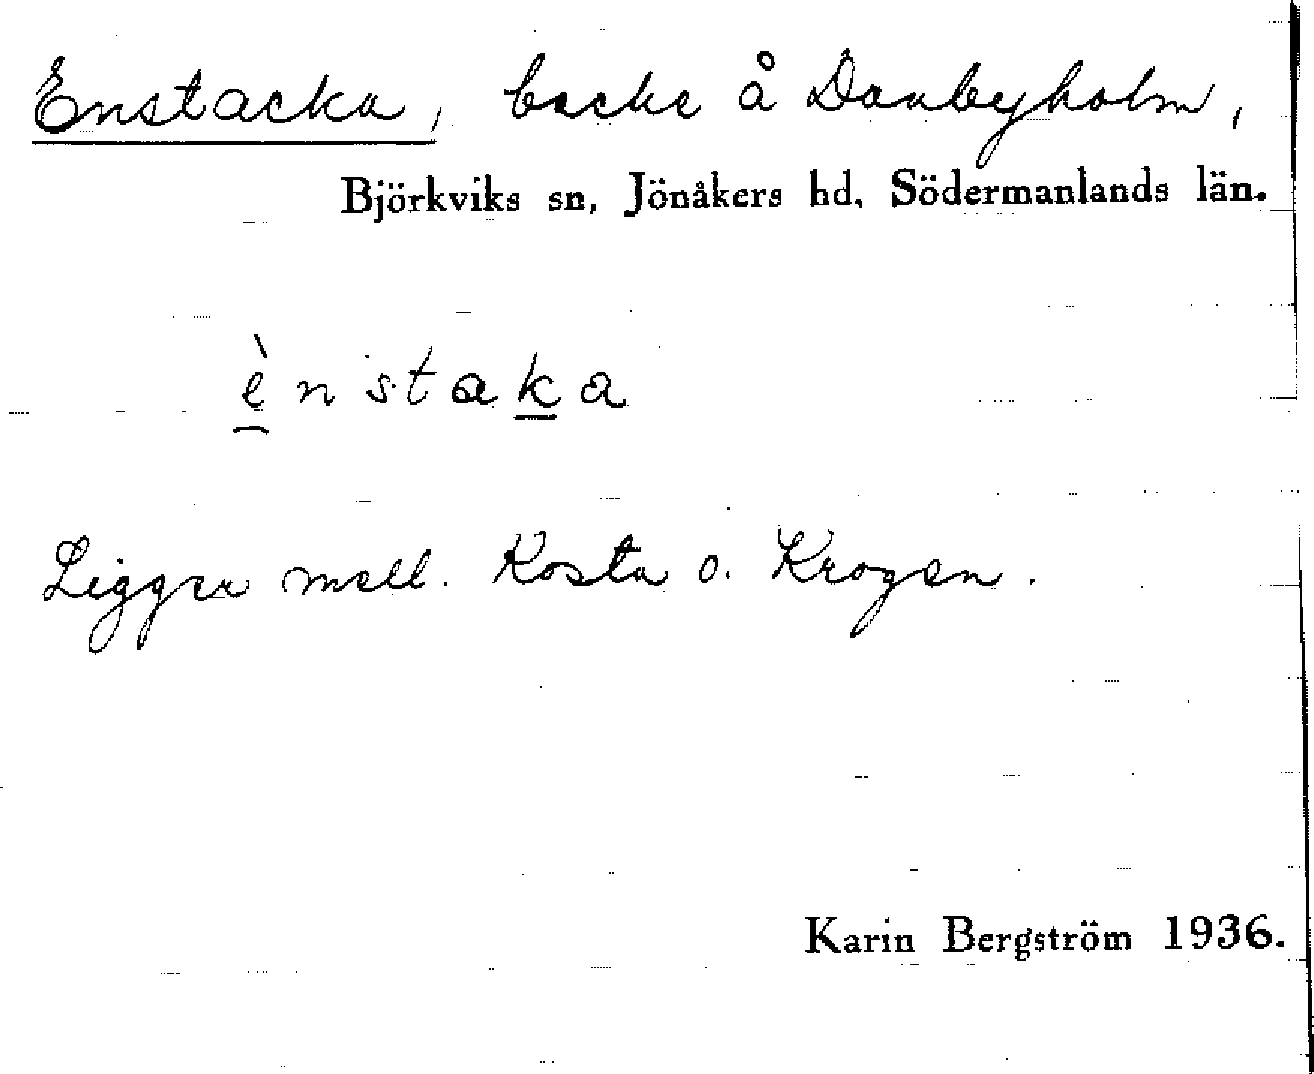 Enstacka, backe å Danbyholm,
Björkviks sn, Jönåkers hd, Södermanlands län.
ènstaka
Ligger mell. Kosta o. Krogen.
Karin Bergström 1936.